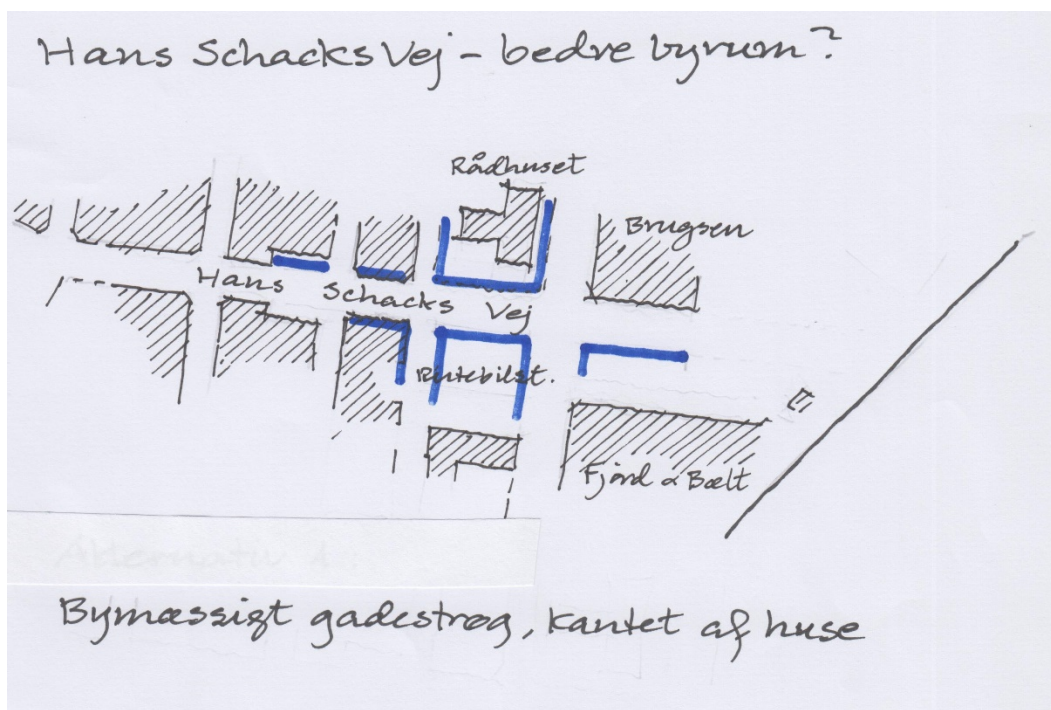 Hans Schacks Vej - bedre byrum?
Rådhuset
Brugsen
Hans Schacks Vej
Rutebilst.
Fjord & Bælt
Alternativ 1:
Bymæssigt gadestrøg, kantet af huse